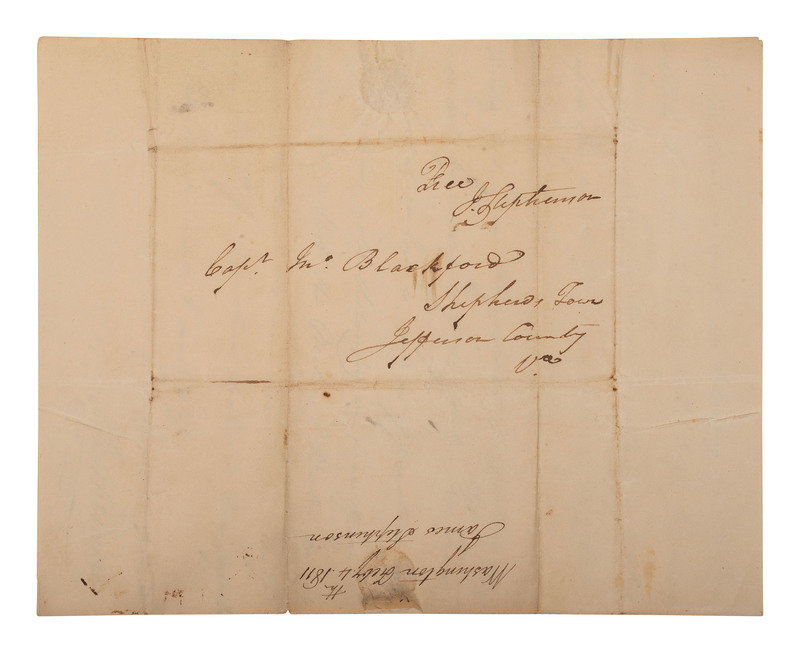 Free
J. Stephenson
Capt. Jno. Blackford
Shepherds Town
Jefferson County
Va
James Stephenson
Washington Feby 4th 1811